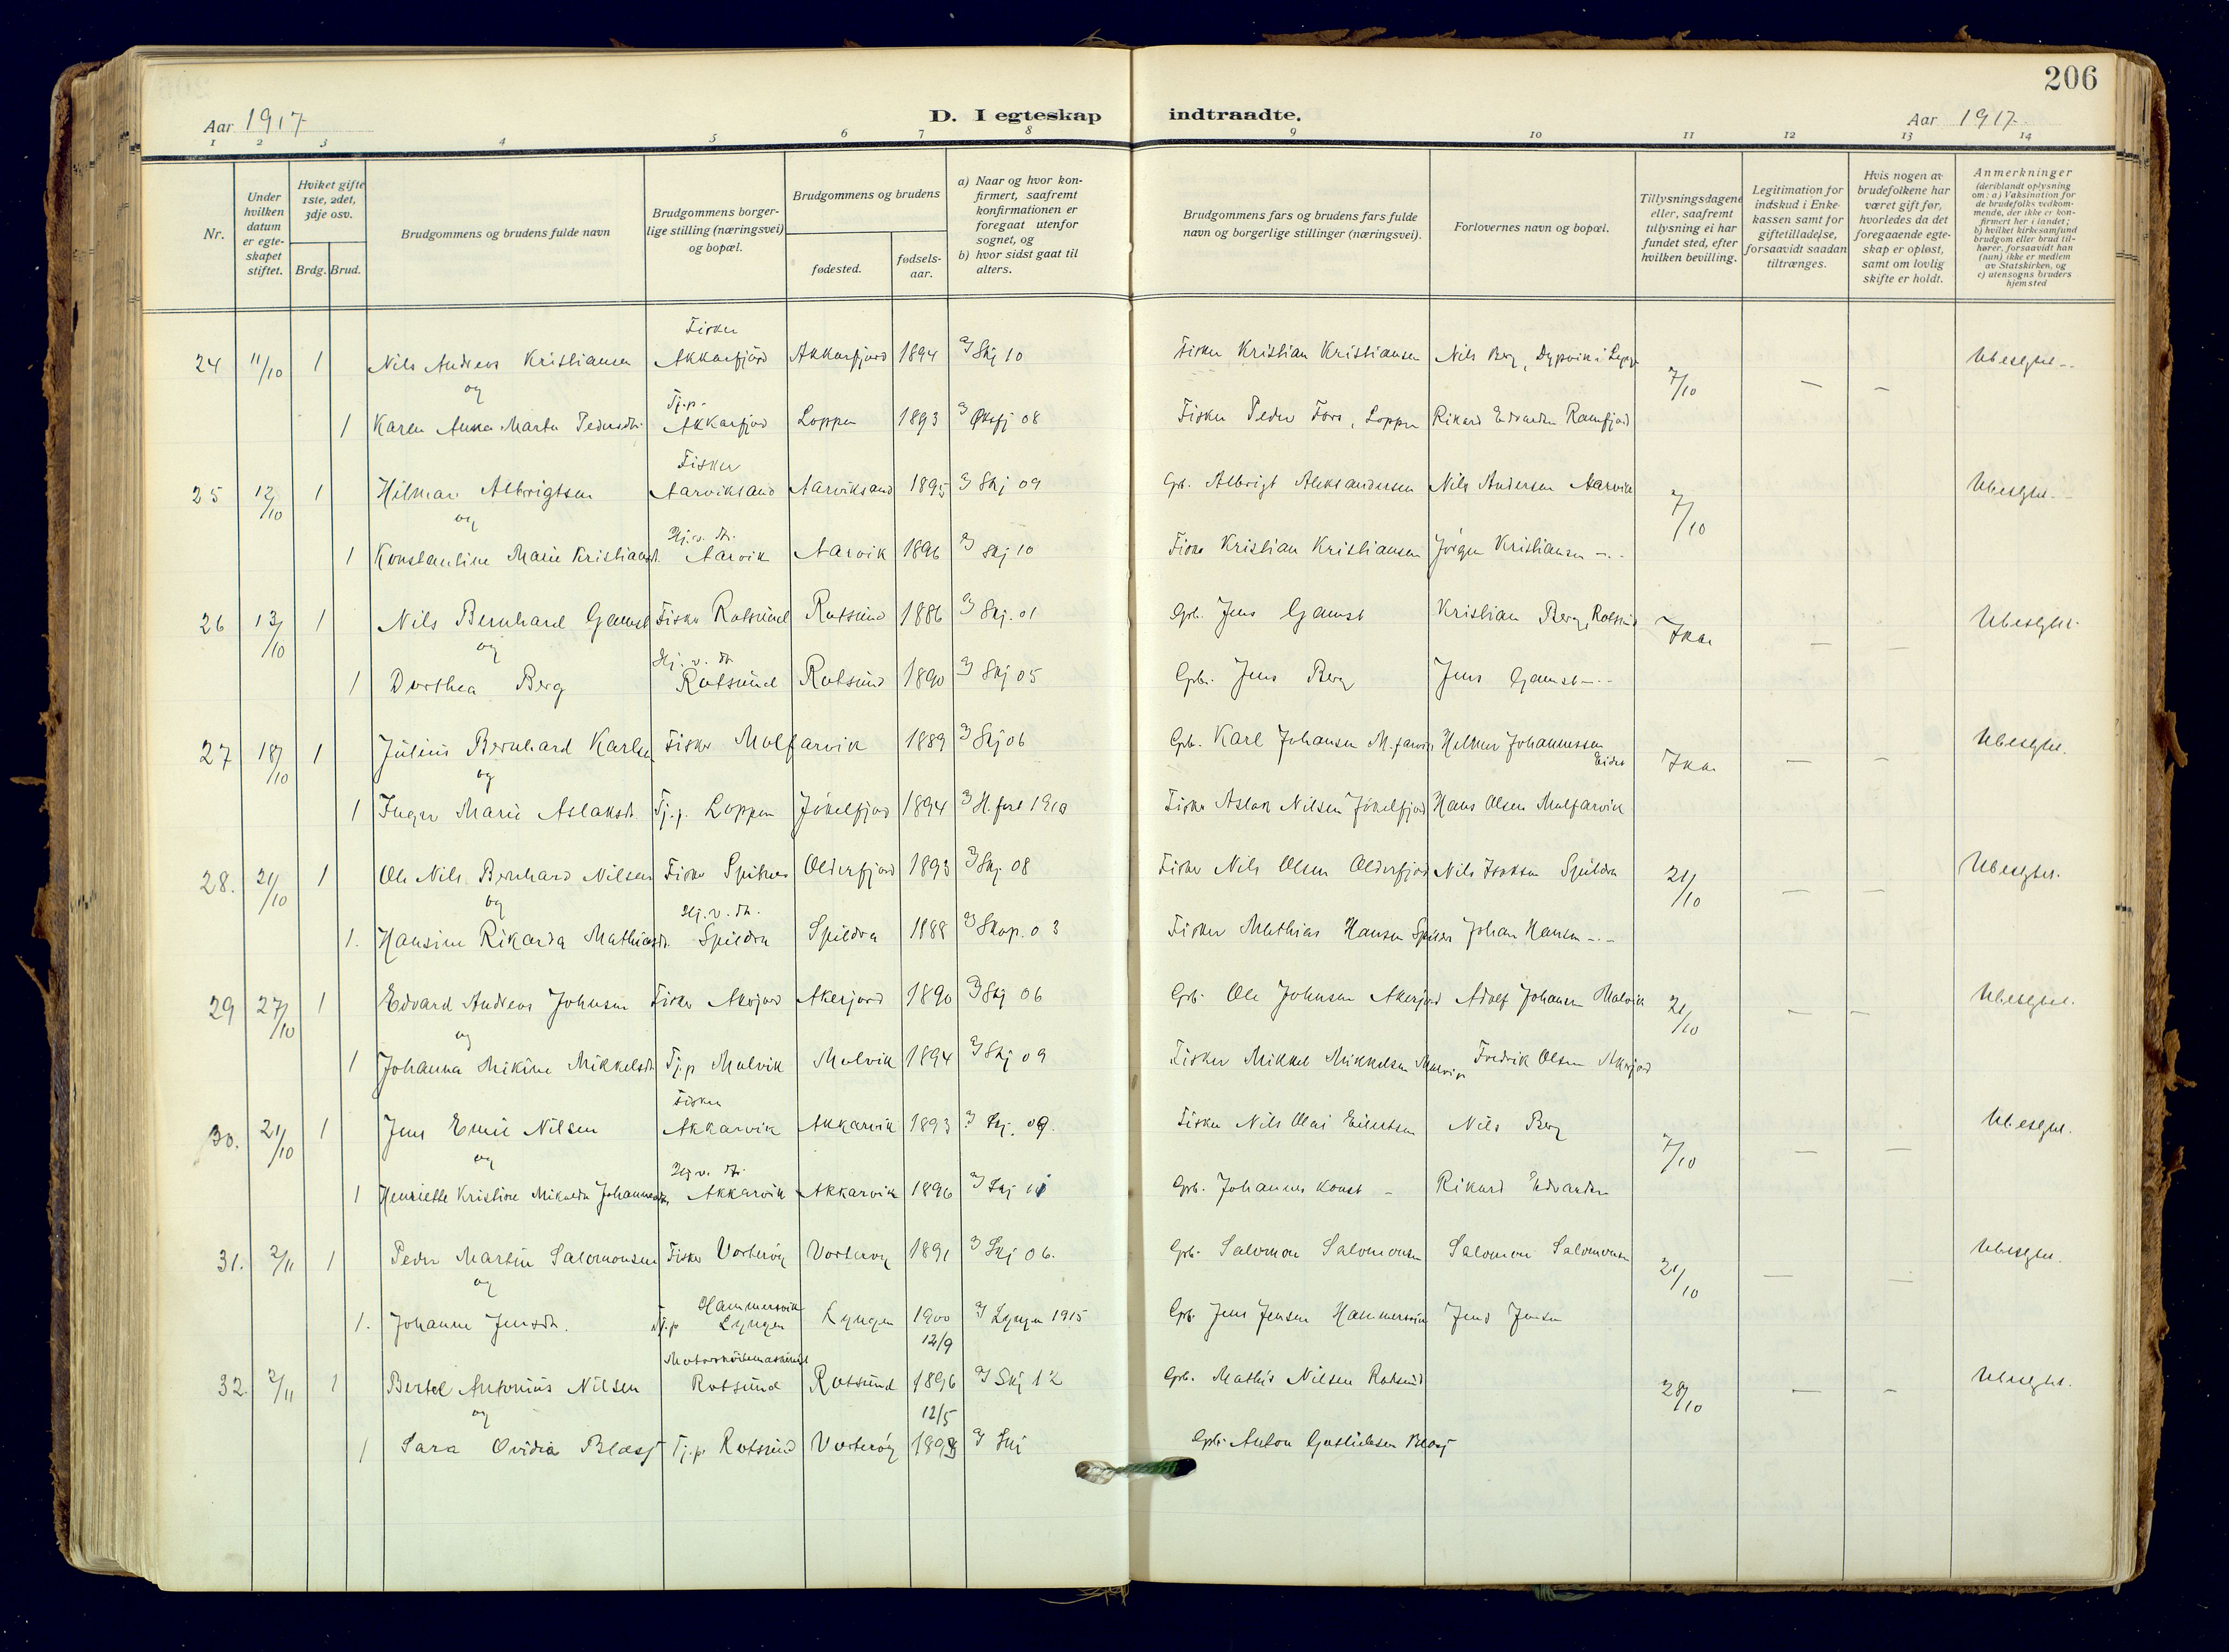 206
Aar 1917
D. I egteskap indtraadte.
Aar 1917.
1 2 3 4 5 6 7 8 9 10 11 12 13 14
Nr.
Under hvilken datum er egteskapet stiftet.
Hviket gifte 1ste, 2det, 3dje osv.
Brdg. Brud.
Brudgommens og brudens fulde navn
Brudgommens borgerlige stilling (næringsvei) og bopæl.
Brudgommens og brudens
fødested.
fødselsaar.
a) Naar og hvor konfirmert, saafremt konfirmationen er foregaat utenfor sognet, og
b) hvor sidst gaat til alters.
Brudgommens fars og brudens fars fulde navn og borgerlige stillinger (næringsvei).
Forlovernes navn og bopæl.
Tillysningsdagene eller, saafremt tillysning ei har fundet sted, efter hvilken bevilling.
Legitimation for indskud i Enkekassen samt for giftetilladelse, forsaavidt saadan tiltrænges.
Hvis nogen av brudefolkene har været gift før, hvorledes da det foregaaende egteskap er opløst, samt om lovlig skifte er holdt.
Anmerkninger
(deriblandt oplysning om: a) Vaksination for de brudefolks vedkommende, der ikke er konfirmert her i landet; b) hvilket kirkesamfund brudgom eller brud tilhører, forsaavidt han (hun) ikke er medlem av Statskirken, og c) utensogns bruders hjemsted
24 11/10 1 Nils Andreas Kristiansen Fisker Akkarfjord Akkarfjord 1894 I Skj 10 Fisker Kristian Kristiansen Nils Berg, Dypvik i 7/10 — — Ubeslgtet.
og
1 Karen Anna Marta Pedersdtr. Tj.p. Akkarfjord Loppen 1893 I Øksfj 08 Fisker Peder Fors, Loppen Rikard Edvardsen
25 12/10 1 Hilmar Albrigtsen Fisker Aarviksand Aarviksand 1895 I Skj 09 Grb. Albrigt Aleksandersen Nils Andersen Aarvik 7/10 Ubeslgtet.
og
1 Konstantine Marie Kristiansdt. Hj.v. dtr. Aarvik Aarvik 1896 I Skj 10 Fisker Kristian Kristiansen Jørgen Kristiansen -.-
26 13/10 1 Nils Bernhard Gamst Fisker Rotsund Rotsund 1886 I Skj. 01 Grb. Jens Gamst Kristian Berg, Rotsund — — Ubeslgtet.
og
1 Dorthea Berg Hj. v. dtr. Rotsund Rotsund 1890 I Skj 05 Grb. Jens Berg Jens Gamst -.-
27 18/10 1 Julius Bernhard Karlsen Fisker Molfarvik 1889 I Skj 06 Grb. Karl Johansen M.farvik Helmer Johannessen Eidet — — Ubeslgtet.
og
1 Inger Marie Aslaksdt. Tj.p. Loppen Jøkelfjord 1894 I H.fest 1910 Fisker Aslak Nilsen Jøkelfjord Hans Olsen Molfarvik
28. 21/10 1 Ole Nils Bernhard Nilsen Fisker Olderfjord 1893 I Skj. 08 Fisker Nils Olsen Olderfjord Nils Isaksen Spildra 21/10 — — Ubeslgtet.
og
1. Hansine Rikarda Mathiasdtr. Hj.v. dtr. Spildra Spildra 1888 I Skap. 03 Fisker Mathias Hansen Johan Hansen -.-
29 27/10 1 Edvard Andreas Johnsen Fisker Akerjord Akerjord 1890 I Skj 06 Grb. Ole Johnsen Akerjord Adolf Johansen Malvik 21/10 — — Ubeslgtet.
og
1 Johanna Mikine Mikkelsdt. Tj.p Malvik Malvik 1894 I Skj 09 Fisker Mikkel Mikkelsen Malvik Fredrik Olsen Akerjord
30. 21/10 1 Jens Emil Nilsen Fisker Akkarvik Akkarvik 1893 I Skj. 09. Fisker Nils Olai Eilertsen Nils Berg 7/10 — — Ubeslgtet.
og
1 Henriette Kristine Johannesdtr. Hj.v. dtr. Akkarvik Akkarvik 1896 I Skj 11 Grb. Johannes Konst - Rikard Edvardsen
31. 2/11 1 Peder Martin Salomonsen Fisker Vorterøy Vorterøy 1891 I Skj 06. Grb. Salomon Salomonsen Salomon Salomonsen 21/10 — — Ubeslgtet.
og
1. Johanne Jensdtr. Tj.p Hammervik Lyngen Lyngen 1900 I Lyngen 1915 Grb. Jens Jensen Hammervik Jens Jensen
32. 2/11 1 Bertel Antonius Nilsen Rotsund Rotsund 12/9 1896 I Skj 12 Grb. Mathis Nilsen Rotsund 28/10 — — Ubeslgtet.
og
1 Sara Ovidia Blæsj Tj.p. Rotsund Vorterøy 12/5 1898 I Skj Grb. Anton Gotliebsen Blæsj